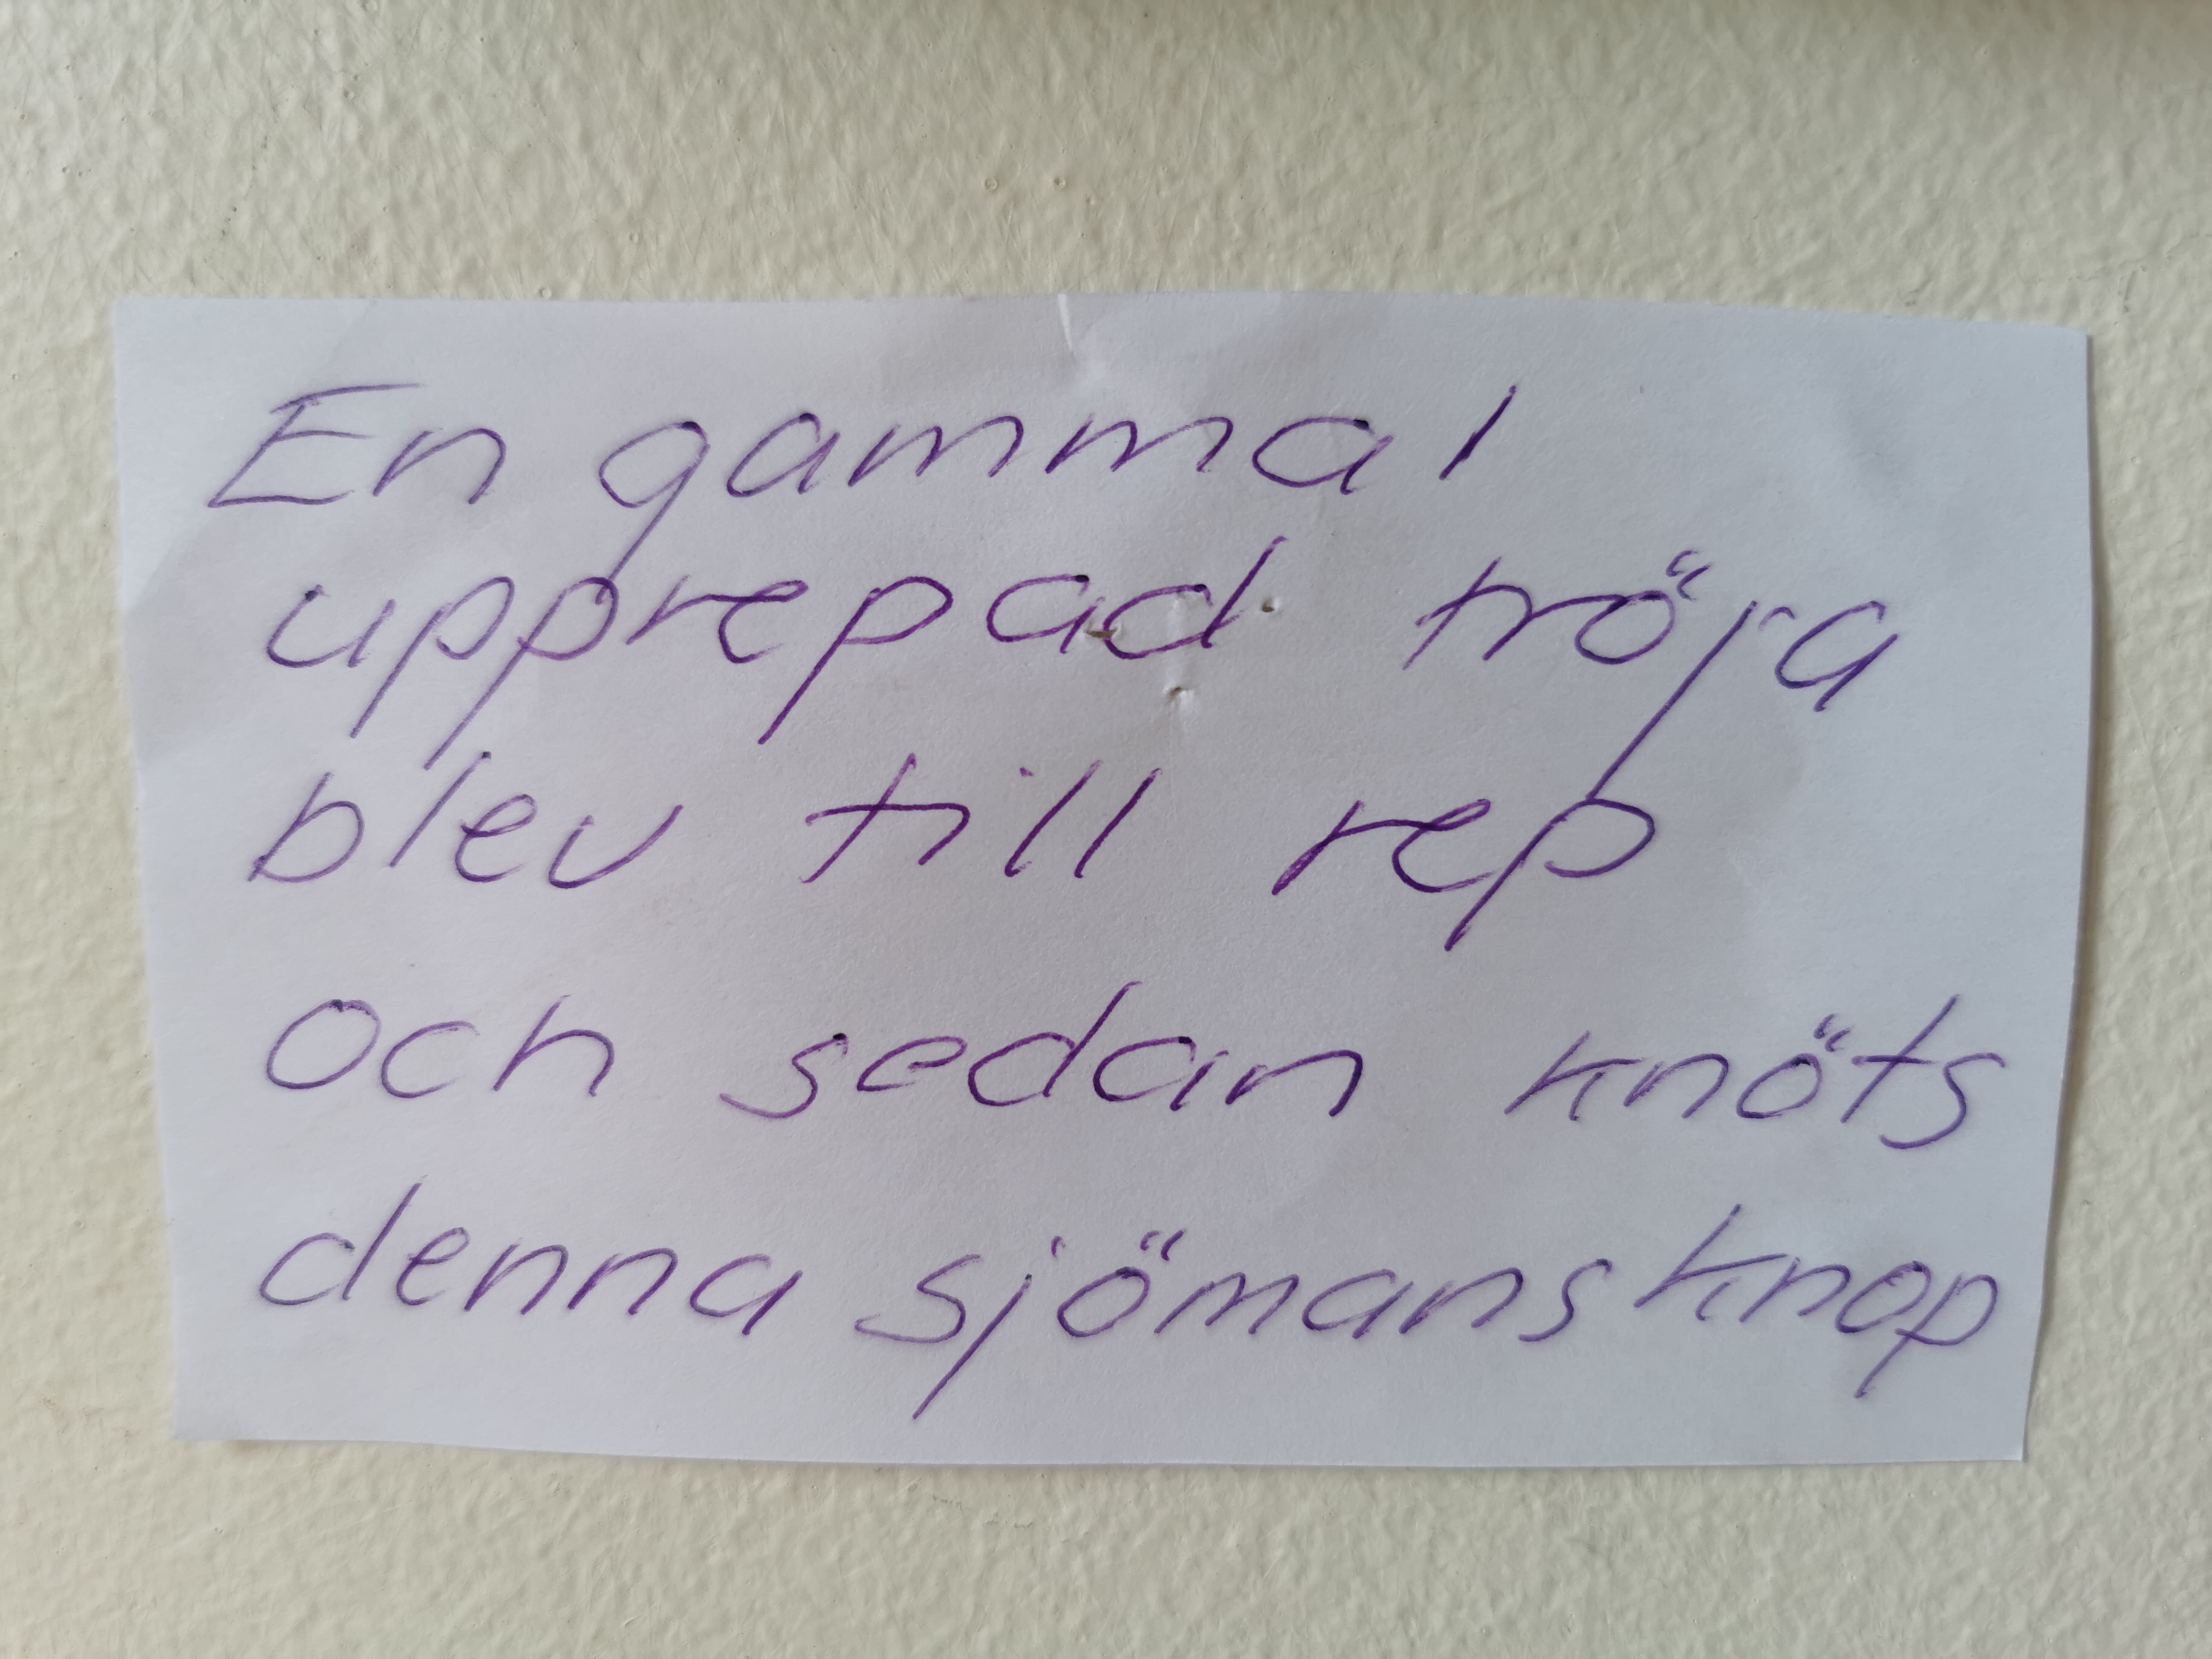 En gammal
upprepad tröja
blev till rep
och sedan knöts
denna sjömansknop